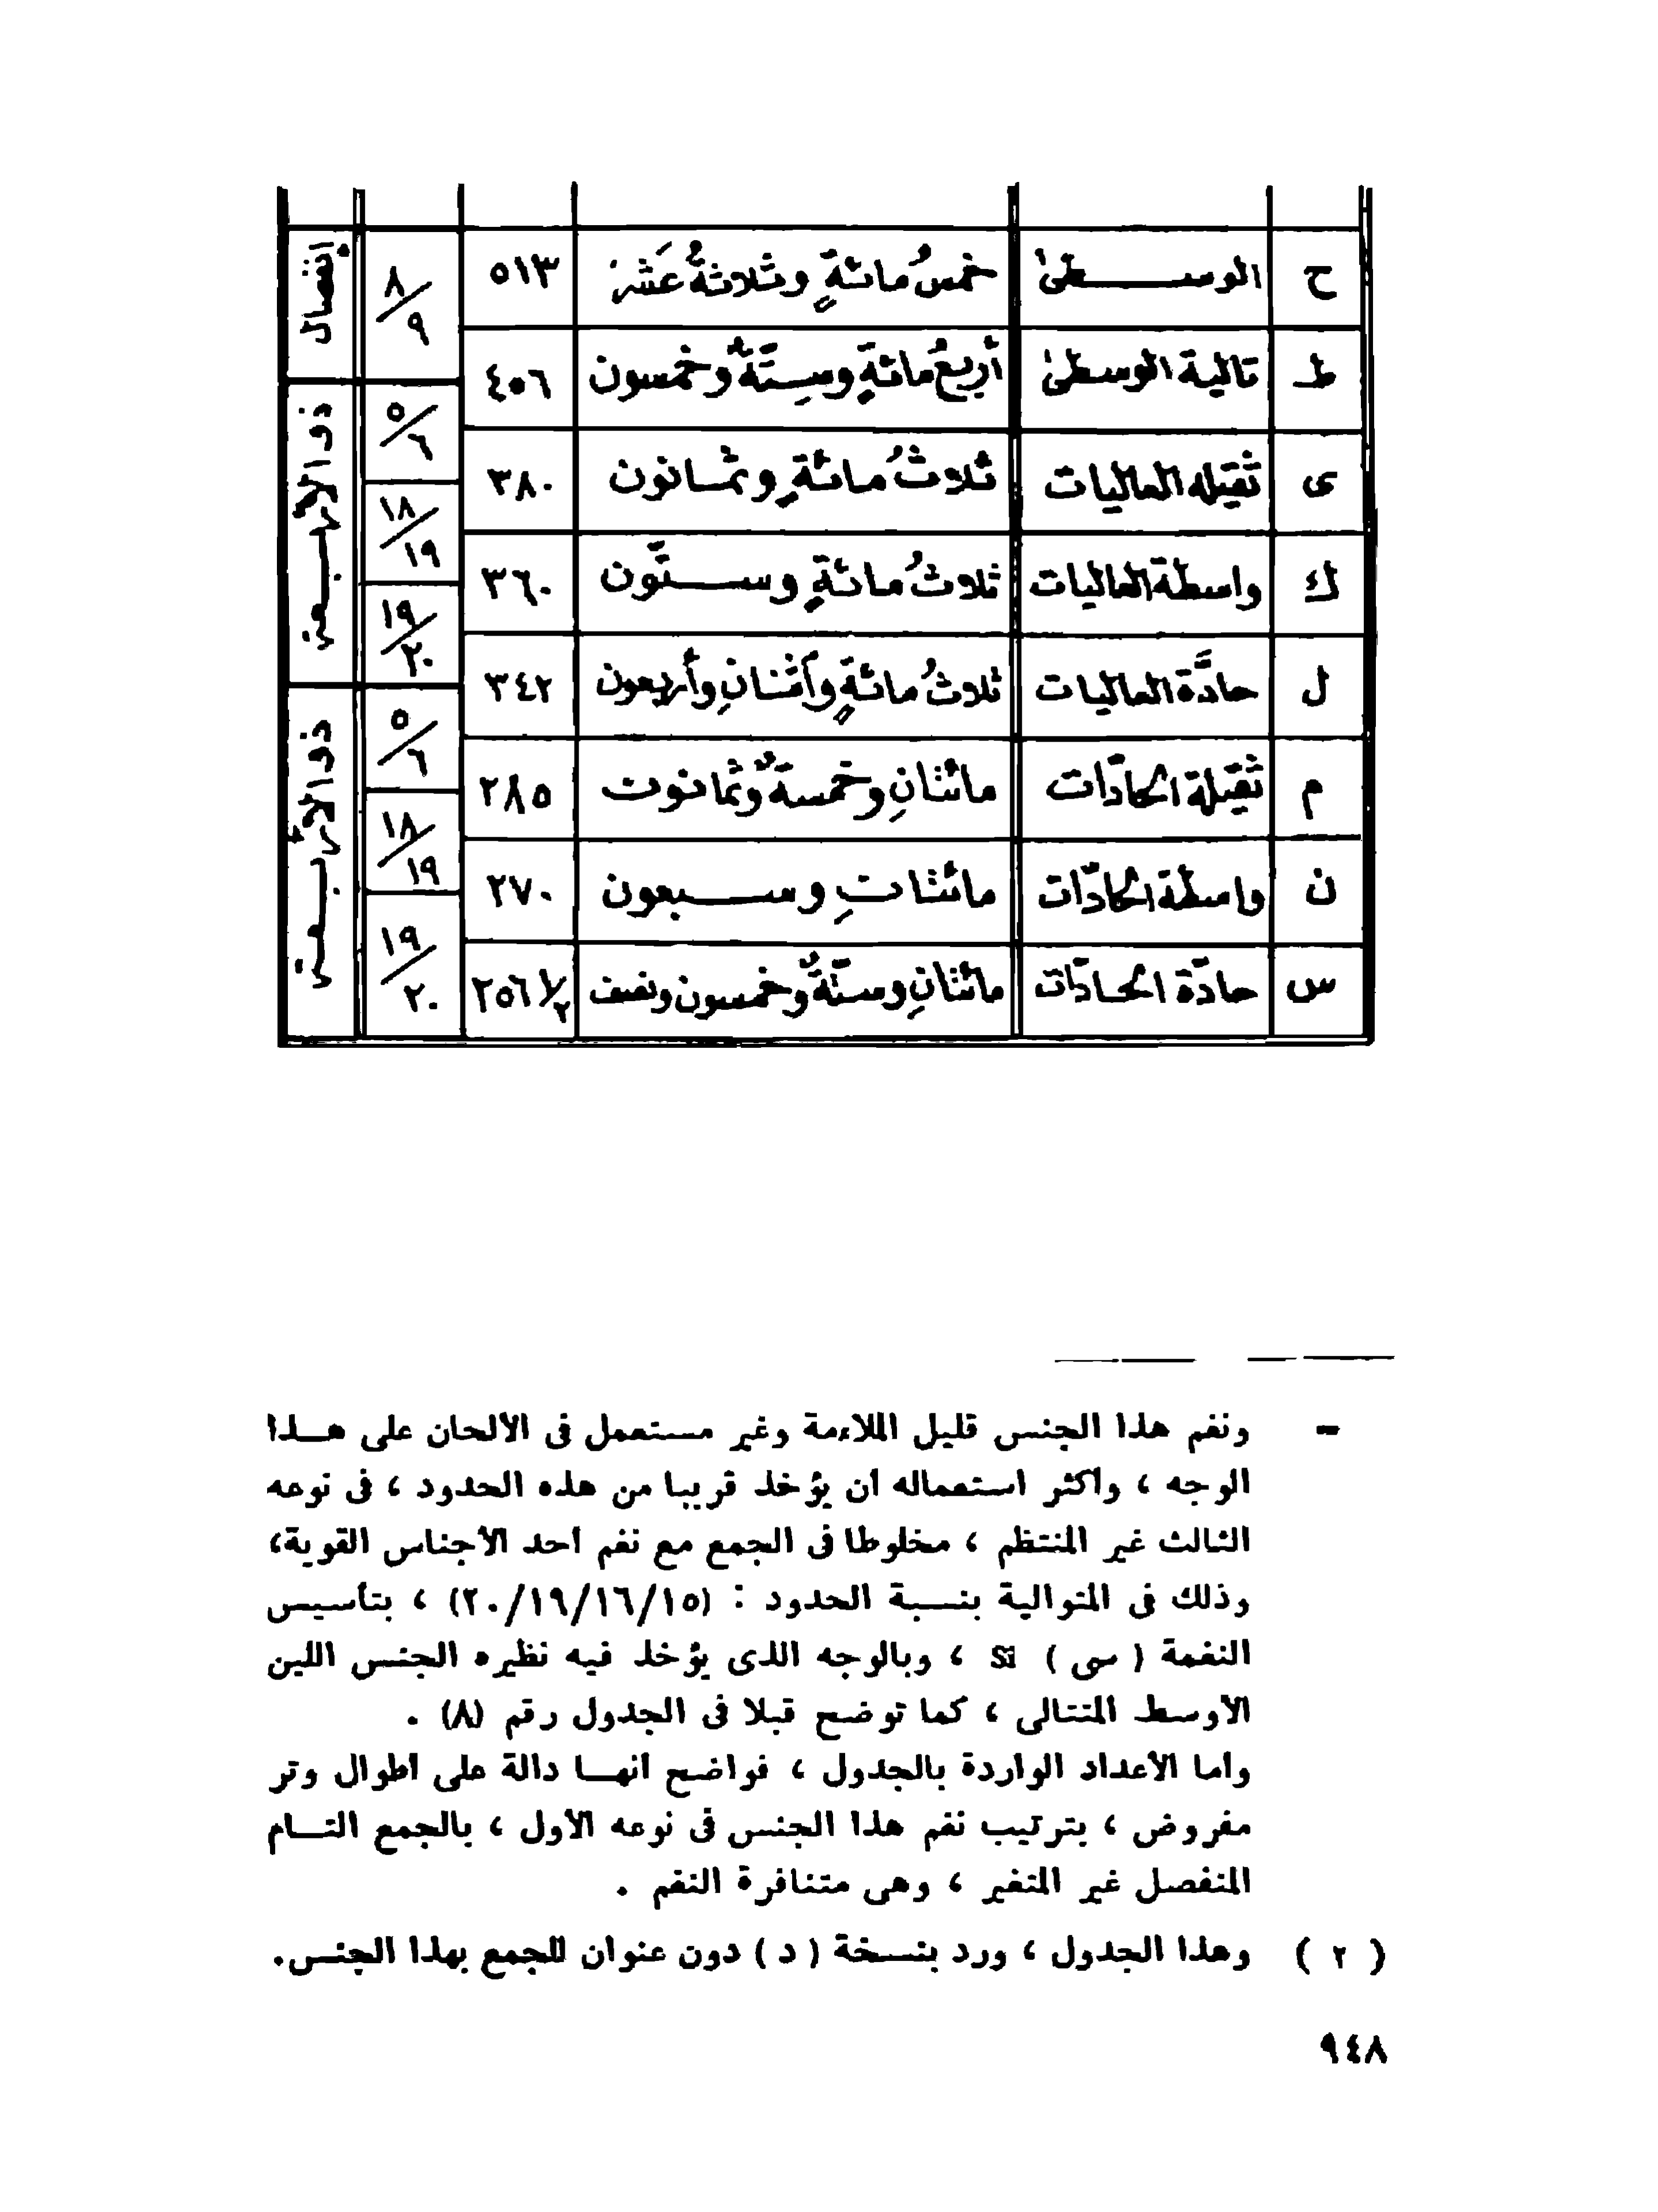 ح الوسطى خمسُ مائةٍ وثلاثةُ عَشَر ٥١٣ ٨/٩ إنفصال
ط تالية الوسطى أربعُ مائةٍ وسِتَّةٌ وخمسون ٤٥٦
ى ثقيلة العاليات ثلاثُ مائةٍ وثمانون ٣٨٠ ٥/٦ ذو الأربعة
ك واسطة العاليات ثلاثُ مائةٍ وستّون ٣٦٠ ١٨/١٩
ل حادَّة العاليات ثلاثُ مائةٍ وأثنانِ وأربعون ٣٤٢ ١٩/٢٠
م ثقيلة الحادّات مائتانِ وخمسةٌ وثمانون ٢٨٥ ٥/٦ ذو الأربعة
ن واسطة الحادّات مائتانِ وسبعون ٢٧٠ ١٨/١٩
س حادّة الحادّات مائتانِ وستّةٌ وخمسون ونصف ٢٥٦ ١/٢ ١٩/٢٠
= ونغم هذا الجنس قليل الملاءمة وغير مستعمل فى الألحان على هذا
الوجه ، واكثر استعماله ان يؤخذ قريبا من هذه الحدود ، فى نوعه
الثالث غير المنتظم ، مخلوطا فى الجمع مع نغم احد الأجناس القوية،
وذلك فى المتوالية بنسبة الحدود : (٢٠/١٩/١٦/١٥) ، بتأسيس
النغمة ( سى ) Si ، وبالوجه الذى يؤخذ فيه نظيره الجنس اللين
الأوسط المتتالى ، كما توضح قبلا فى الجدول رقم (٨) .
واما الأعداد الواردة بالجدول ، فواضح انها دالة على اطوال وتر
مفروض ، بترتيب نغم هذا الجنس فى نوعه الأول ، بالجمع التام
المنفصل غير المتغير ، وهى متنافرة النغم .
( ٢ ) وهذا الجدول ، ورد بنسخة ( د ) دون عنوان للجمع بهذا الجنس.
٩٤٨